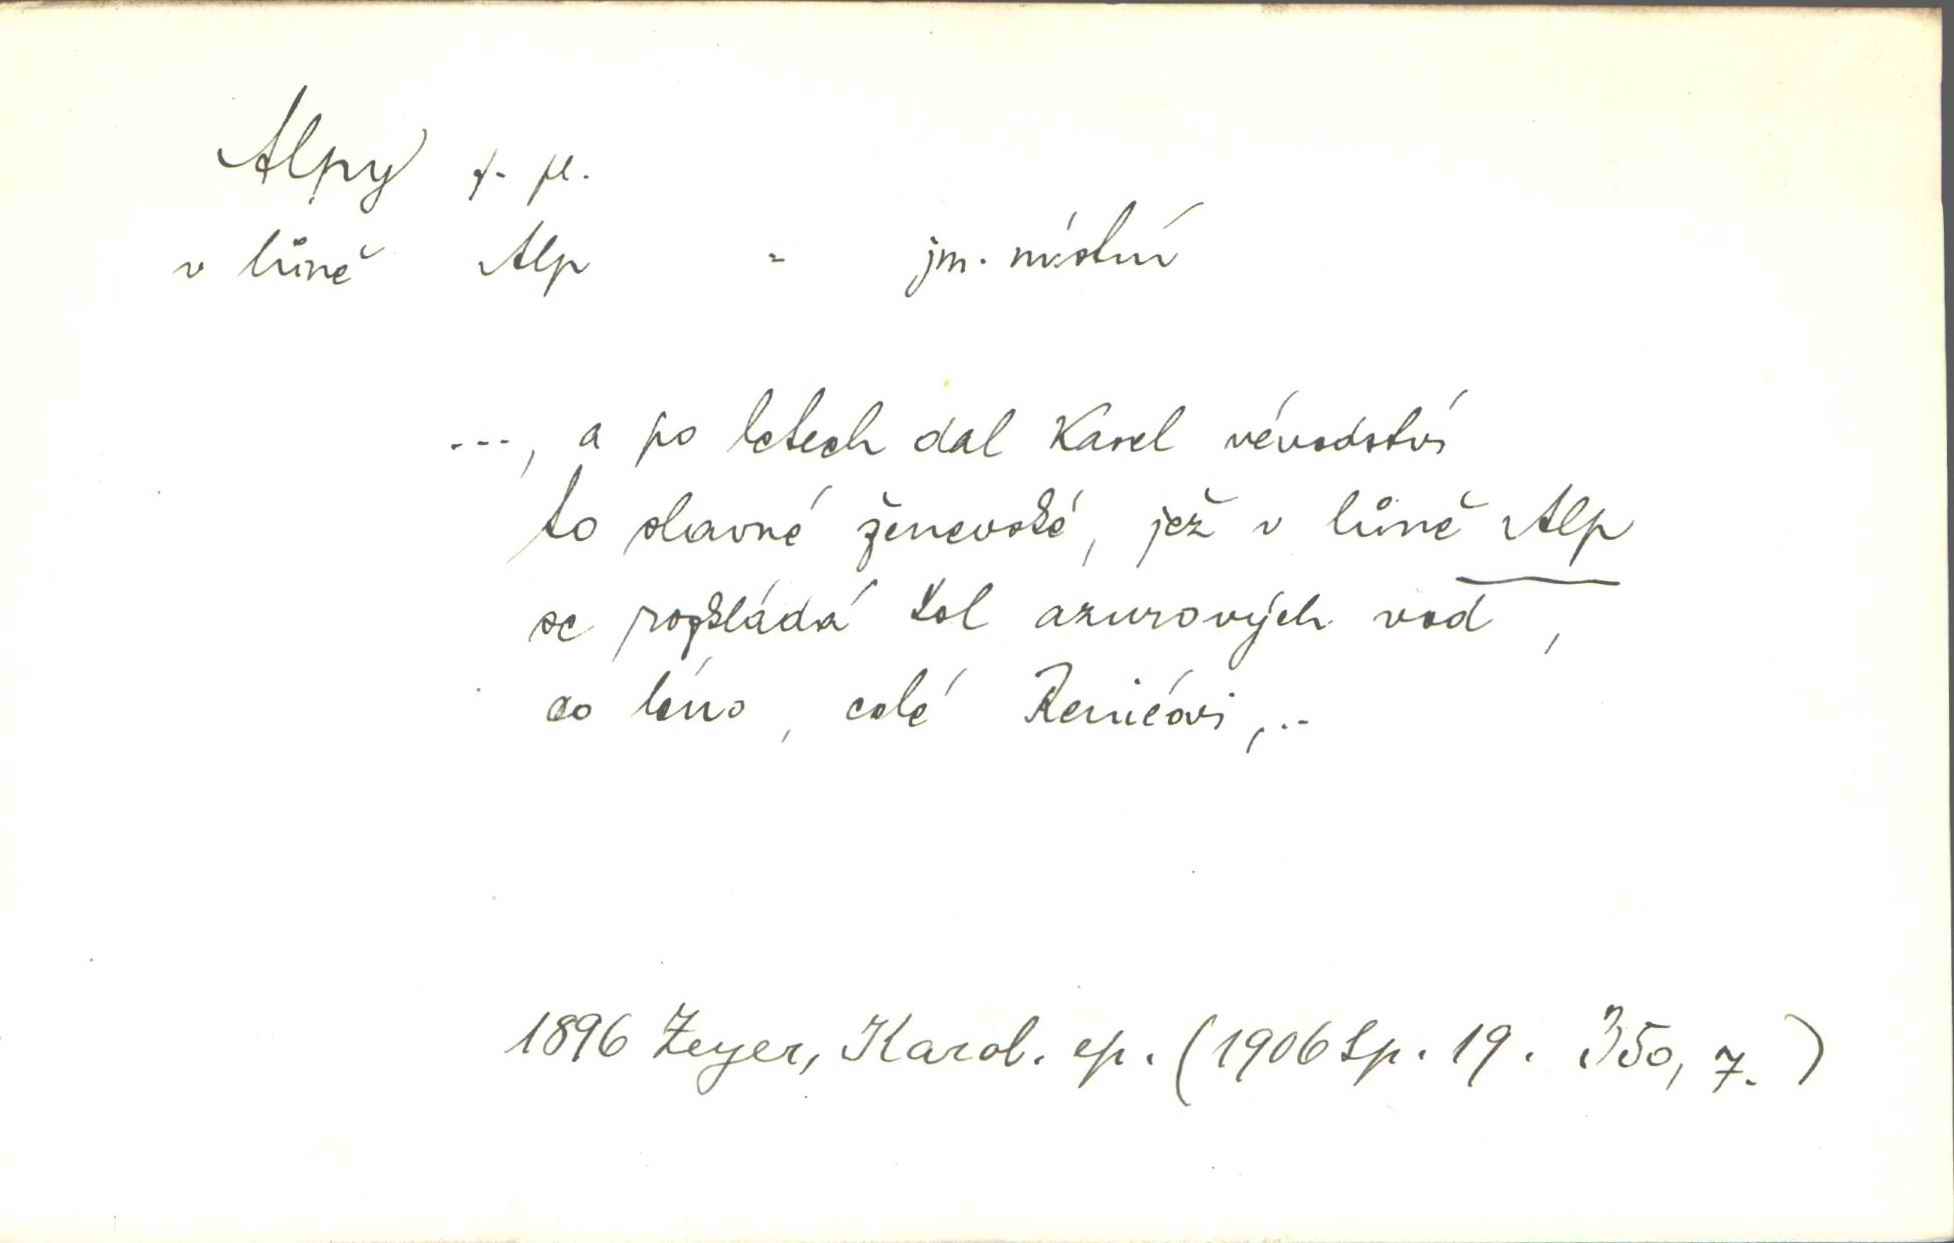 Alpy f. pl.
v lůně Alp - jm. místní
..., a po letech dal Karel vévodství
to slavné ženevské, jež v lůně Alp
se rozkládá kol azurových vod,
co léno, celé Reniéovi,..
1896 Zeyer, Karol. ep. (1906 Sp. 19. 350, 7.)